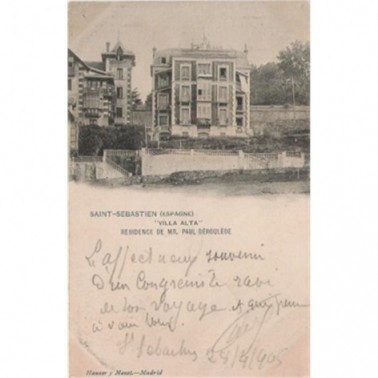 SAINT-SEBASTIEN (ESPAGNE)
"VILLA ALTA"
RESIDENCE DE MR. PAUL DÉROULÈDE
L'affectueux souvenir
d'un Congressiste ravi
de son voyage et qui pense
à vous tous.
St Sebastien 24/4/905
Hauser y Menet.—Madrid